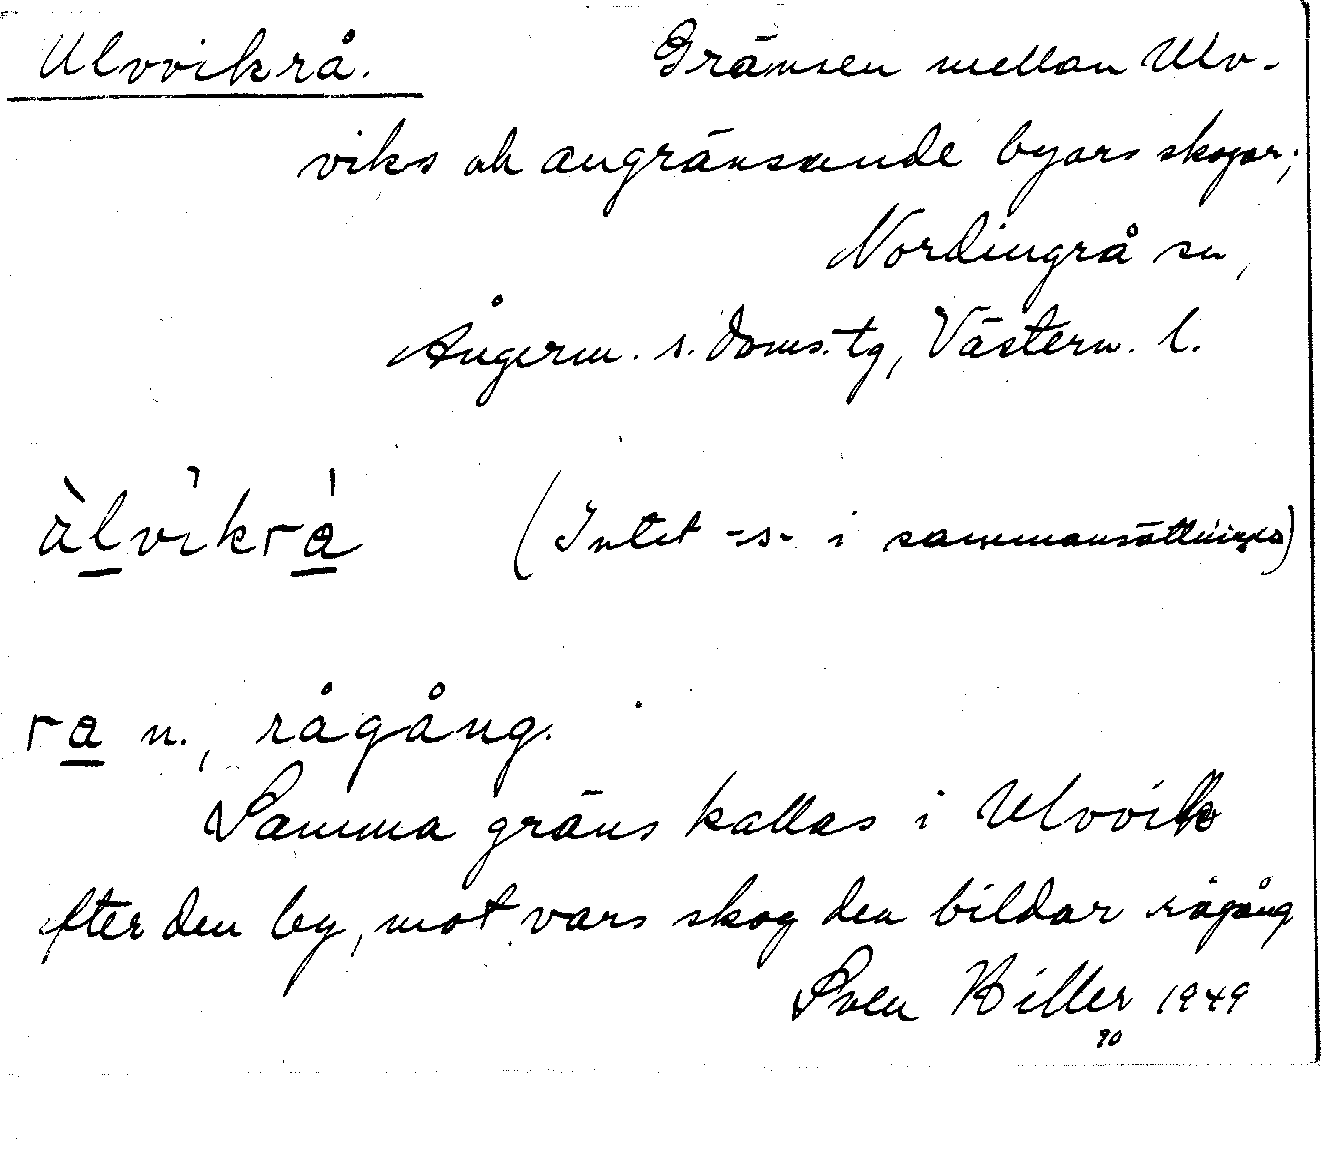 Ulvvikrå. Gränsen mellan Ulv-
viks ok angränsande byars skogar;
Nordingrå sn,
Ångerm. s. doms.-tg, Västern. l.
àlvìkrá (Intet -s- i sammansättningen)
ra n., rågång.
Samma gräns kallas i Ulvvik
efter den by, mot vars skog den bildar rågång
Sven Hiller 1949
90